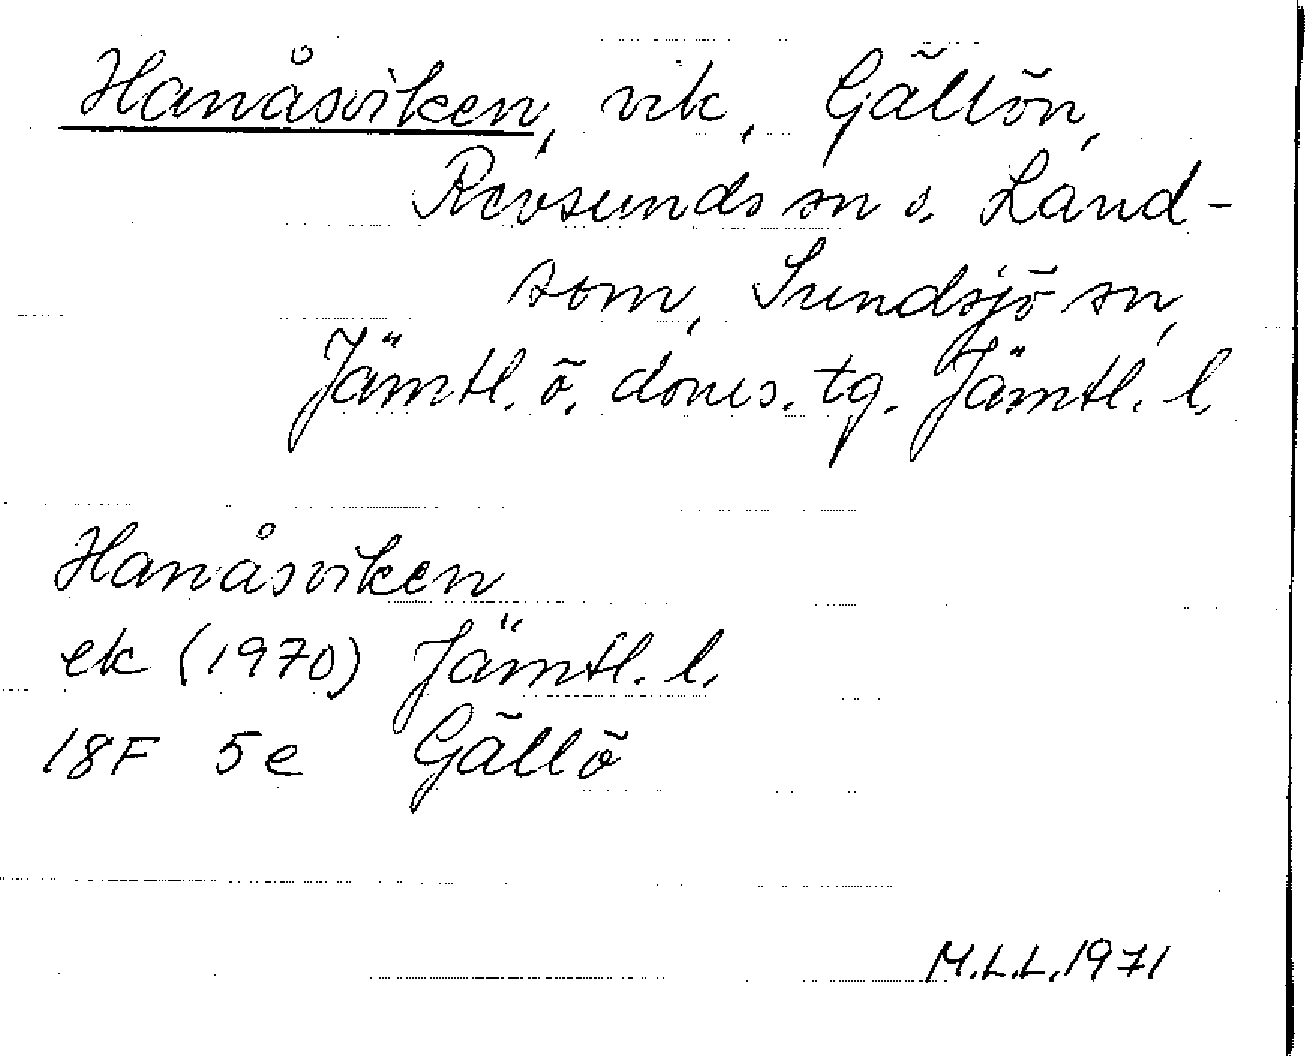 Hanåsviken, vik, Gällön,
Revsunds sn o. Land-
som, Sundsjö sn,
Jämtl. ö. doms. tg. Jämtl. l.
Hanåsviken
ek (1970) Jämtl. l.
18F 5e Gällö
M.L.L. 1971